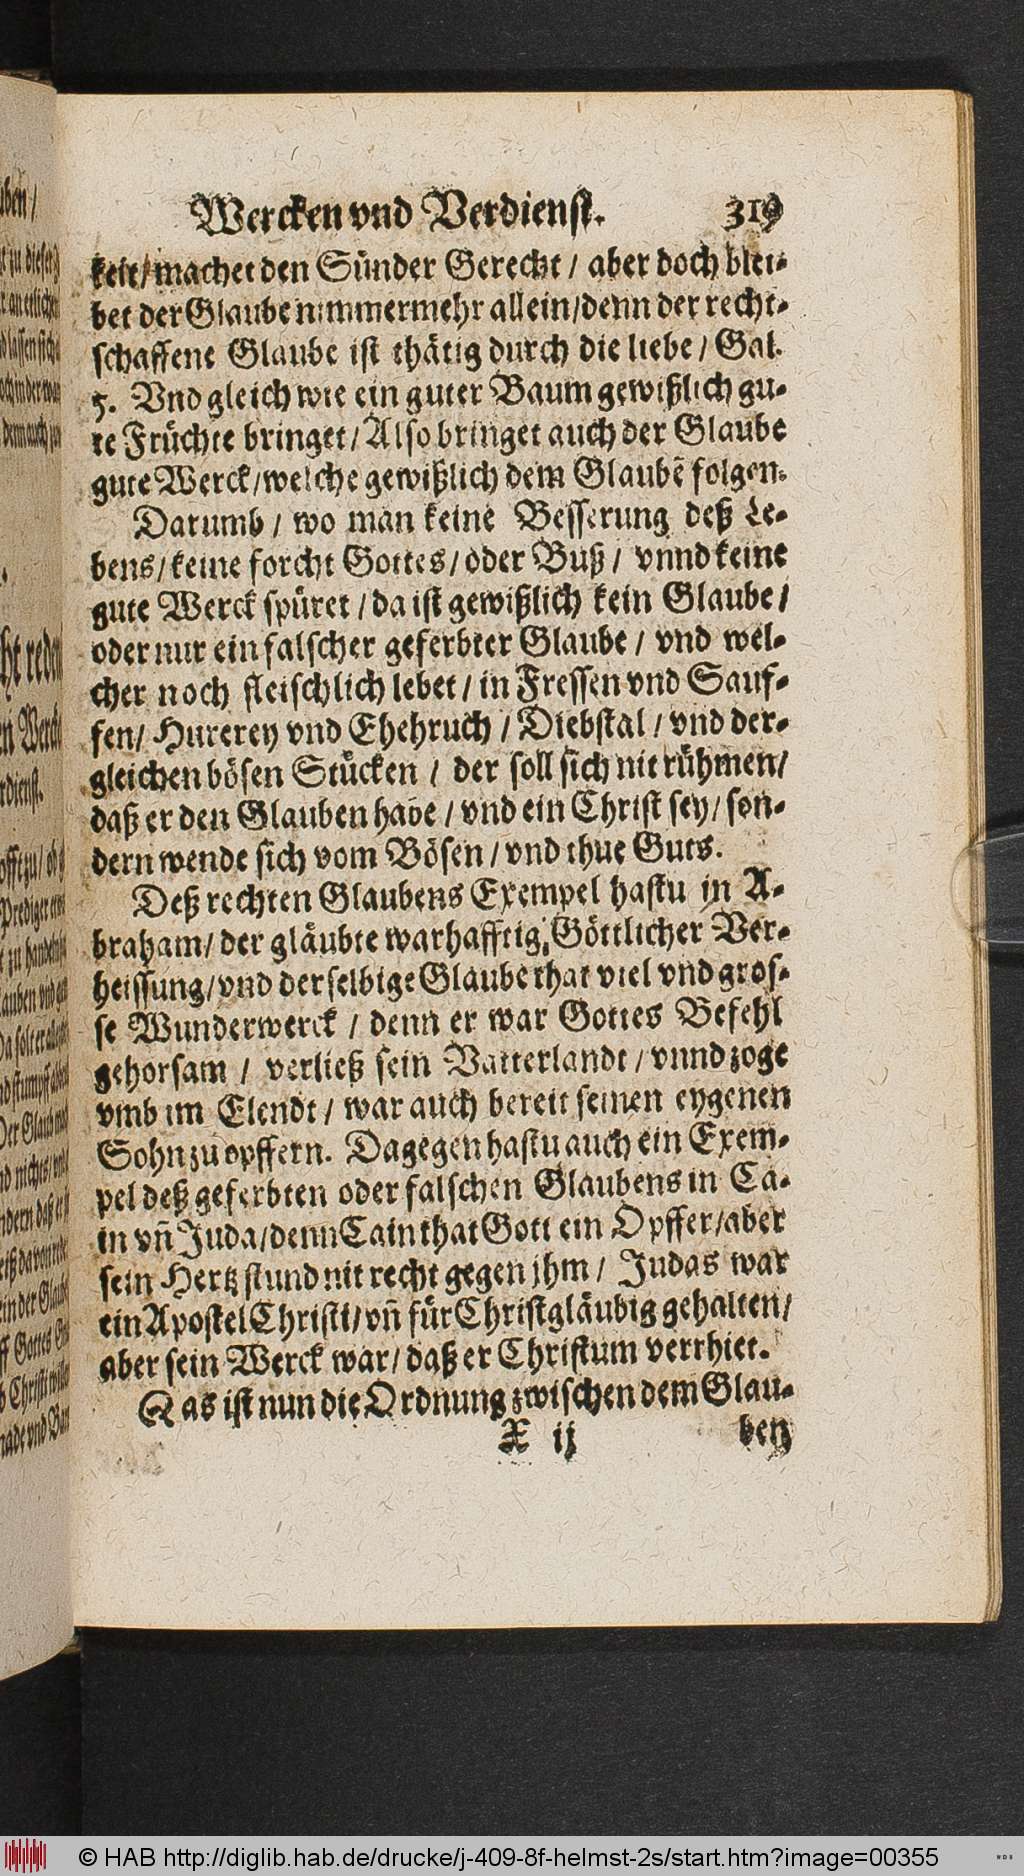 Wercken vnd Verdienst. 319
keit/machet den Sünder Gerecht / aber doch blei-
bet der Glaube nimmermehr allein/denn der recht-
schaffene Glaube ist thätig durch die liebe / Gal.
5. Vnd gleich wie ein guter Baum gewißlich gu-
te Früchte bringet / Also bringet auch der Glaube
gute Werck/welche gewißlich dem Glaubẽ folgen.
Darumb / wo man keine Besserung deß Le-
bens/keine forcht Gottes/oder Buß / vnnd keine
gute Werck spüret / da ist gewißlich kein Glaube /
oder nur ein falscher geferbter Glaube / vnd wel-
cher noch fleischlich lebet / in Fressen vnd Sauf-
fen/ Hurerey vnd Ehehruch / Diebstal / vnd der-
gleichen bösen Stücken / der soll sich nit rühmen/
daß er den Glauben habe / vnd ein Christ sey/ son-
dern wende sich vom Bösen / vnd thue Guts.
Deß rechten Glaubens Exempel hastu in A-
braham/ der gläubte warhafftig, Göttlicher Ver-
heissung/vnd derselbige Glaube that viel vnd gros-
se Wunderwerck / denn er war Gottes Befehl
gehorsam / verließ sein Vatterlandt / vnnd zoge
vmb im Elendt / war auch bereit seinen eygenen
Sohn zu opffern. Dagegen hastu auch ein Exem-
pel deß geferbten oder falschen Glaubens in Ca-
in vñ Juda/denn Cain that Gott ein Opffer/aber
sein Hertz stund nit recht gegen jhm / Judas war
ein Apostel Christi/vñ für Christgläubig gehalten/
aber sein Werck war/ daß er Christum verrhiet.
Das ist nun die Ordnung zwischen dem Glau-
X ij ben
© HAB http://diglib.hab.de/drucke/j-409-8f-helmst-2s/start.htm?image=00355